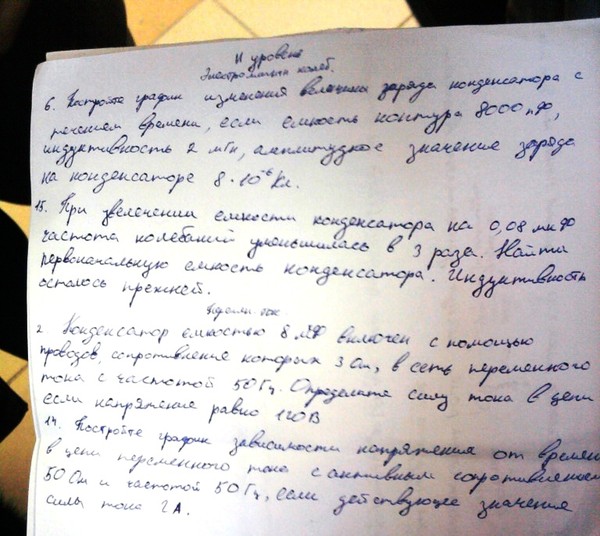 II уровень
Электромагнитн колеб.
6. Постройте график изменения величины заряда конденсатора с
течением времени, если емкость контура 8000 пФ,
индуктивность 2 мГн, амплитудное значение заряда
на конденсаторе 8·10⁻⁶ Кл.
15. При увеличении емкости конденсатора на 0,08 мкФ
частота колебаний уменьшилась в 3 раза. Найти
первоначальную емкость конденсатора. Индуктивность
осталось прежней.
ток
2. Конденсатор емкостью 8 мкФ включен с помощью
проводов, сопротивление которых 3 Ом, в сеть переменного
тока с частотой 50 Гц. Определите силу тока в цепи
если напряжение равно 120В
14. Постройте график зависимости напряжения от времени
в цепи переменного тока с активным сопротивлением
50 Ом и частотой 50 Гц, если действующее значение
силы тока 2 А.